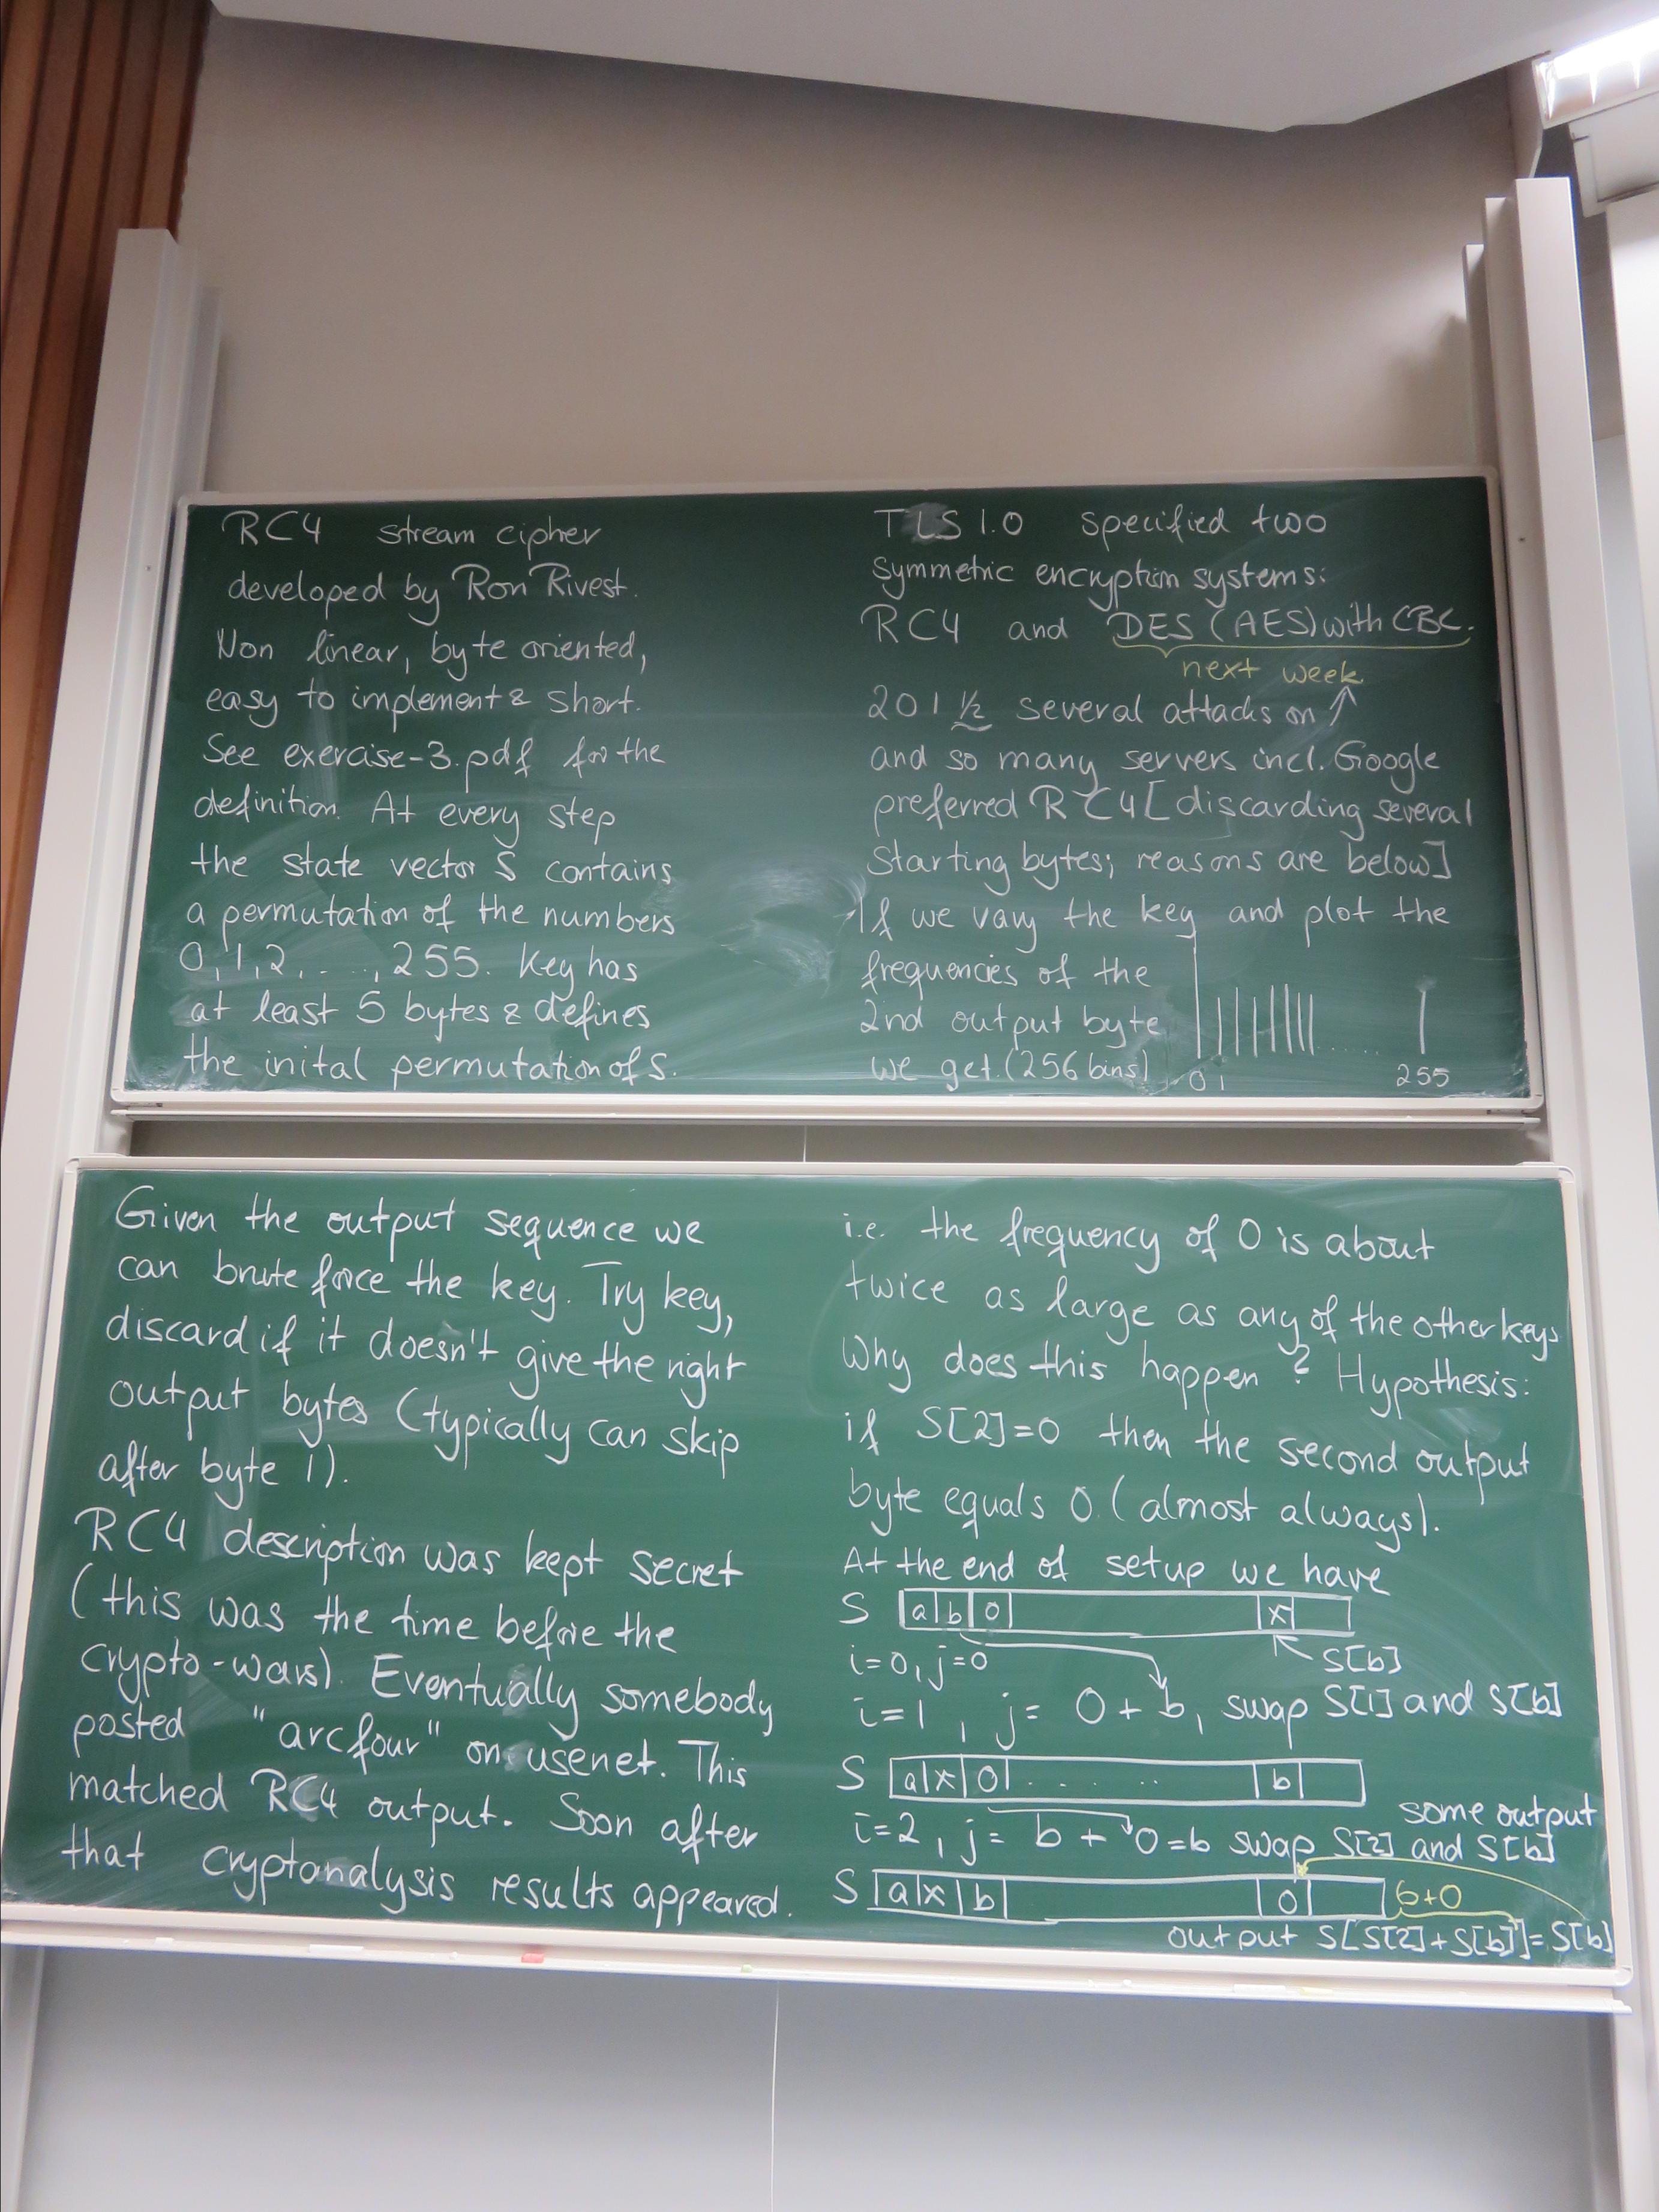 RC4 stream cipher
developed by Ron Rivest.
Non linear, byte oriented,
easy to implement & short.
See exercise-3.pdf for the
definition. At every step
the state vector S contains
a permutation of the numbers
0,1,2,...,255. Key has
at least 5 bytes & defines
the inital permutation of S.
TLS 1.0 specified two
symmetric encryption systems:
RC4 and DES (AES) with CBC.
next week
201 1/2 several attacks on ↑
and so many servers incl. Google
preferred RC4 [discarding several
starting bytes; reasons are below]
If we vary the key and plot the
frequencies of the
2nd output byte
we get. (256 bins)
0 1 ...... 255
Given the output sequence we
can brute force the key. Try key,
discard if it doesn't give the right
output bytes (typically can skip
after byte 1).
RC4 description was kept secret
(this was the time before the
crypto-wars). Eventually somebody
posted "arcfour" on usenet. This
matched RC4 output. Soon after
that cryptanalysis results appeared.
i.e. the frequency of 0 is about
twice as large as any of the other keys
Why does this happen? Hypothesis:
if S[2]=0 then the second output
byte equals 0 (almost always).
At the end of setup we have
S |a|b|0| |x| |
i=0, j=0 S[b]
i=1, j= 0+b, swap S[1] and S[b]
S |a|x|0| . . . . . |b| |
some output
i=2, j= b+0=b swap S[2] and S[b]
S |a|x|b| |0| | b+0
output S[S[2]+S[b]]=S[b]